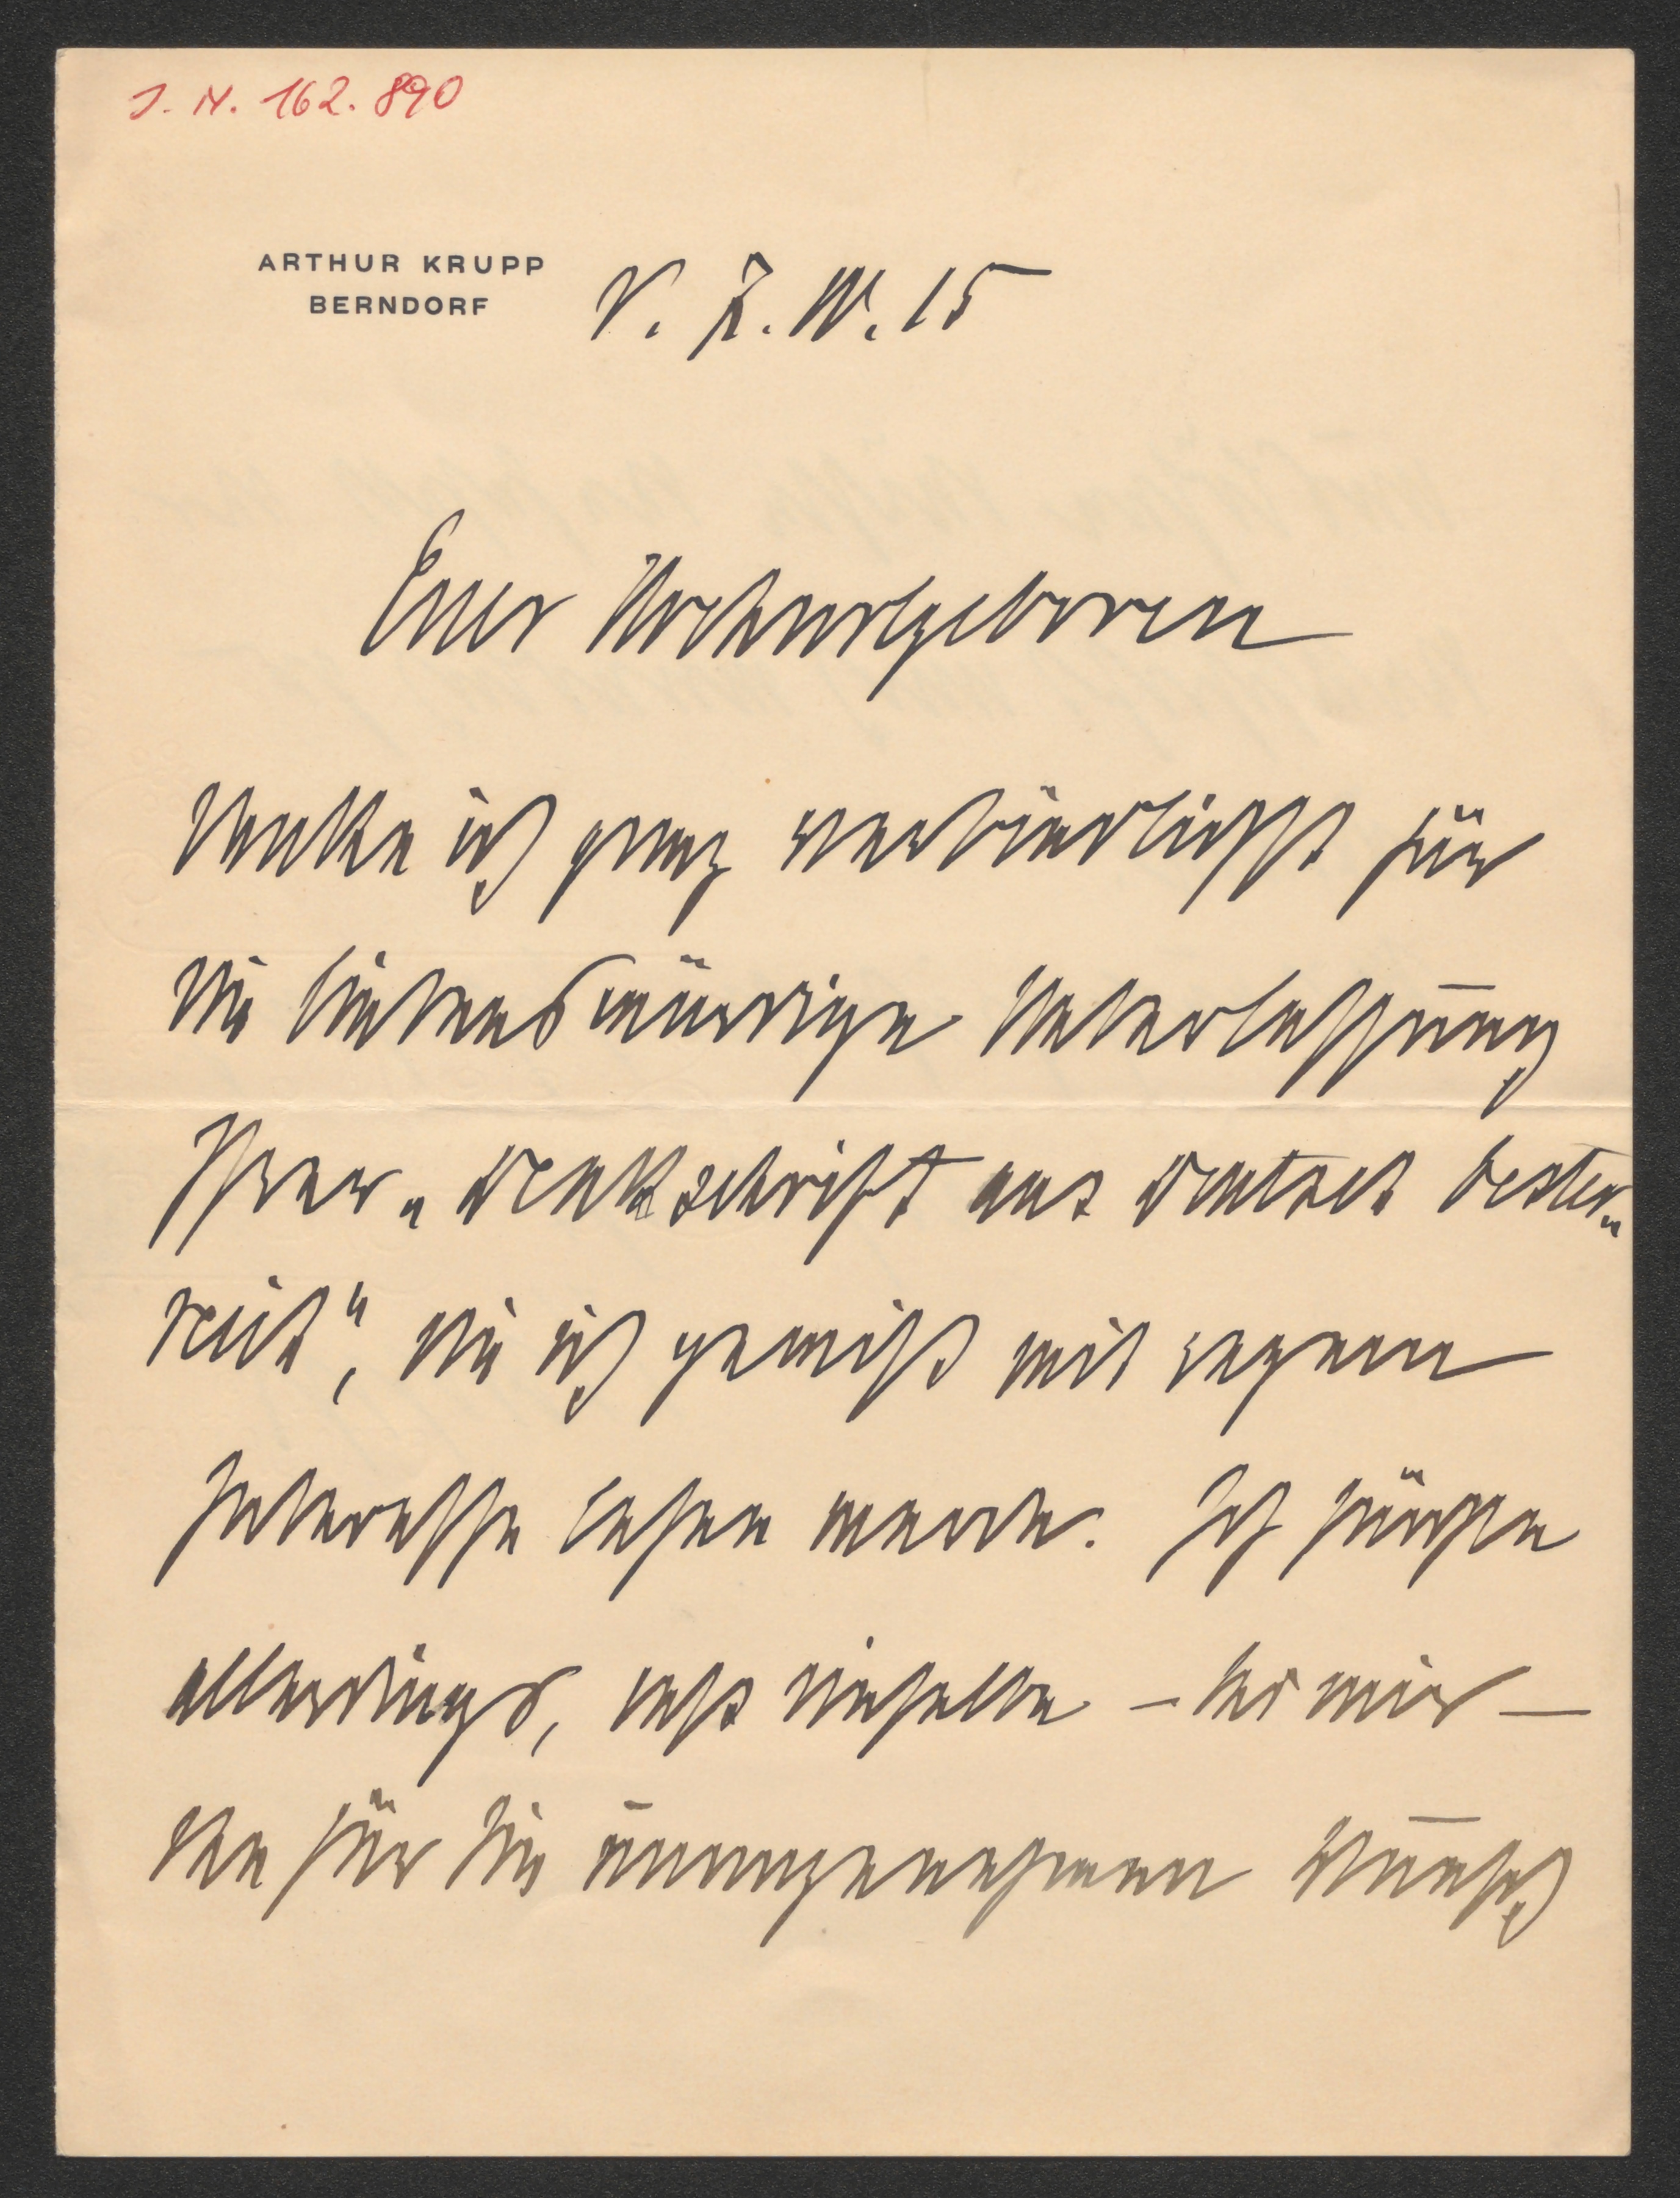 J. N. 162.890
ARTHUR KRUPP
BERNDORF
15
Euer Hochwohlgeboren
danke ich ganz verbindlichst für
die liebenswürdige Ueberlassung
Ihrer „Denkschrift aus Deutsch Oester„
reich“, die ich gewiß mit regem
Interesse lesen werde. Ich fürchte
allerdings, daß dieselbe – bei mir –
den für Sie unangenehmen Wunsch